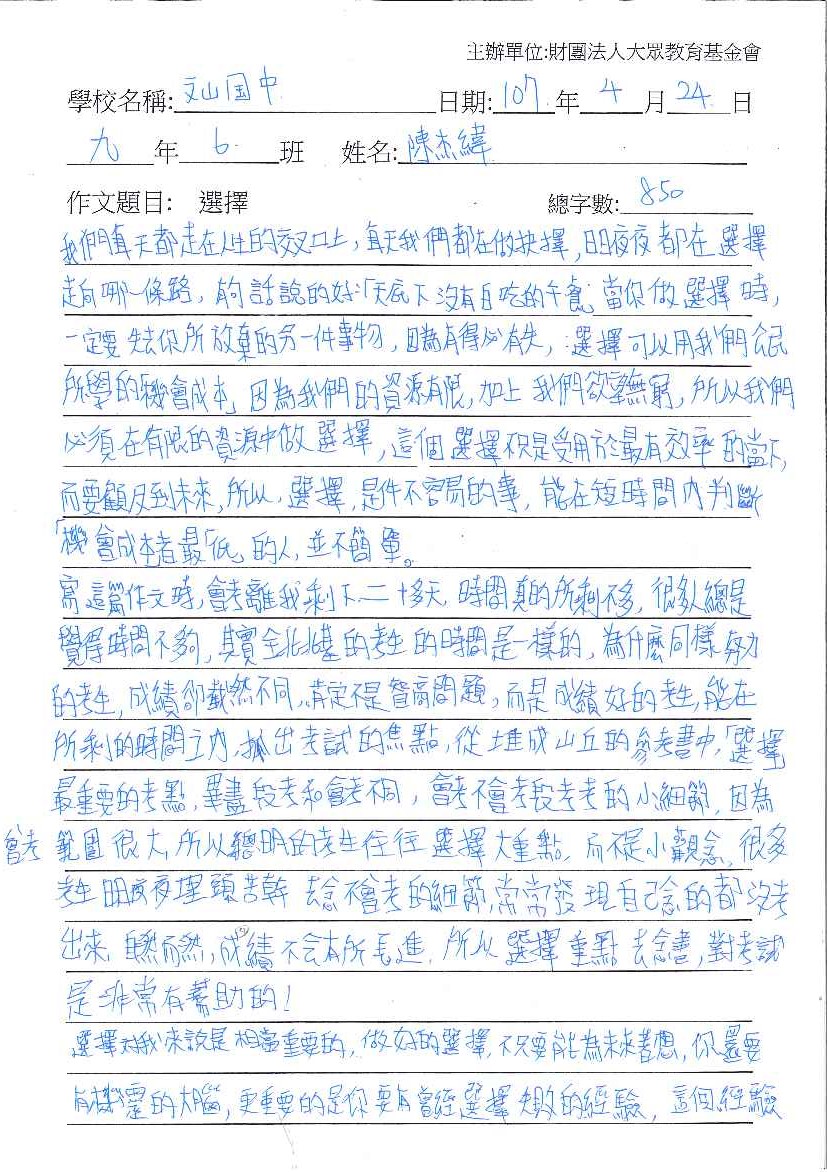 主辦單位:財團法人大眾教育基金會
學校名稱: 文山国中 日期: 107 年 4 月 24 日
九 年 6 班 姓名: 陳杰緯
作文題目: 選擇 總字數: 850
我們每天都走在人生的交叉口上,每天我們都在做抉擇,日日夜夜都在選擇
走向哪一條路,有句話說的好:「天底下沒有白吃的午餐」當你做選擇時,
一定要失去你所放棄的另一件事物,因為有得必有失,選擇可以用我們公民
所學的「機會成本」因為我們的資源有限,加上我們欲望無窮,所以我們
必須在有限的資源中做選擇,這個選擇不只是受用於最有效率的當下,
而要顧及到未來,所以,選擇,是件不容易的事,能在短時間內判斷
「機會成本者最「低」的人,並不簡單。
寫這篇作文時,會考離我剩下二十多天,時間真的所剩不多,很多人總是
覺得時間不夠,其實全北北基的考生的時間是一樣的,為什麼同樣努力
的考生,成績卻截然不同,肯定不是智商問題,而是成績好的考生,能在
所剩的時間之內,抓出考試的焦點,從堆成山丘的參考書中,「選擇」
最重要的考點,畢盡段考和會考不同,會考不會考段考考的小細節,因為
會考範圍很大,所以聰明的考生往往選擇大重點,而不是小觀念,很多
考生日日夜夜埋頭苦幹去念不會考的細節,常常發現自己念的都沒考
出來,自然而然,成績不會有所長進,所以選擇重點去念書,對考試
是非常有幫助的!
選擇對我來說是相當重要的,做好的選擇,不只要能為未來著想,你還要
有機靈的大腦,更重要的是你要有曾經選擇失敗的經驗,這個經驗